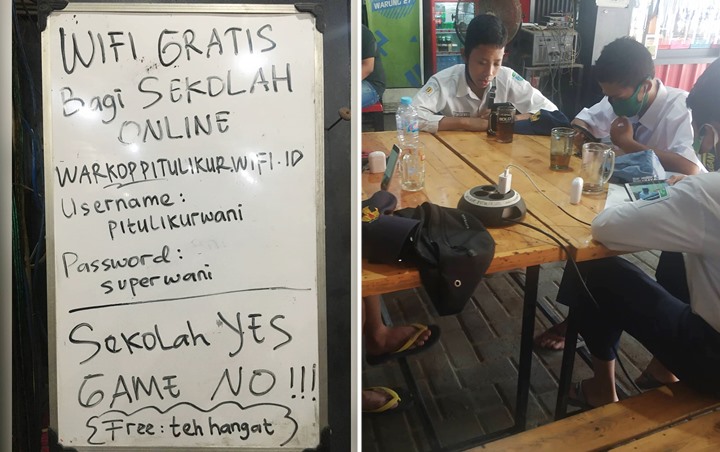 WIFI GRATIS
Bagi SEKOLAH
ONLINE
WARKOPPITULIKUR.WIFI.ID
Username:
PITULIKURWANI
Password:
superwani
Sekolah YES
GAME NO!!!
{Free: teh hangat}
WARUNG 27